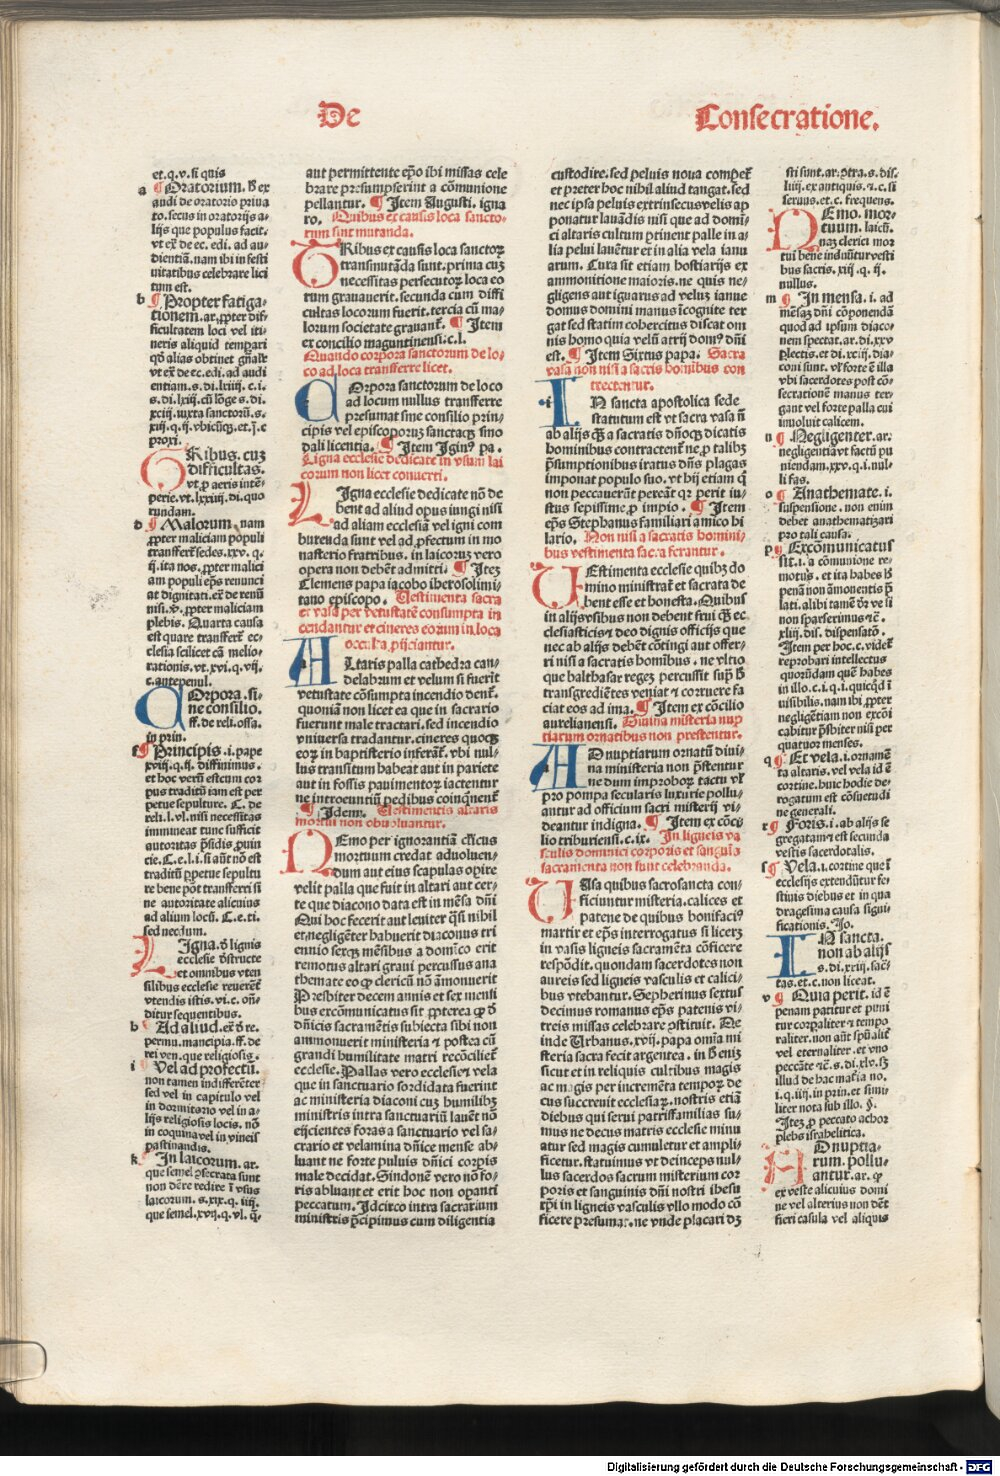 De
Consecratione.
et.q.v.si quis
a ¶ Oratorium. hͦ ex
audi de oratoris priua
to.secus in oratorijs a-
lijs que populus facit.
vt eͯ de ec. edi. ad au-
dientiā.nam ibi in festi
uitatibus celebrare lici
tum est.
b ¶ Propter fatiga-
tionem.ar.ꝓpter dif-
ficultatem loci vel iti-
neris aliquid tempari
qd̄ alias obtinet gn̄aliter
vt eͯ de ec.edi. ad audi
entiam.s.di.lxiiij.c.i.
s.di.lxiij.cū lōge s.di.
xciij.iuxta sanctorū.s.
xiij.q.ij.vbicūqꝫ.et.j.c
proxi.
c Ribus. cuz
difficultas.
vt ꝓ aeris inte-
perie.vt.lxxiiij.di.quo
rundam.
d ¶ Malorum. nam
ꝓpter maliciam populi
transfferr̄ sedes.xxv. q.
ij.ita nos.ꝓpter malici
am populi ep̄s renunci
at dignitati.eͯ de renū
nisi.ꝓpter maliciam
plebis. Quarta causa
est quare transferr̄ ec-
clesia scilicet cā melio-
rationis.vt.xvi.q.vij.
c.antepenul.
Orpora. si-
ne consilio.
ff.de reli.ossa.
in prin.
f ¶ Principis.i.pape
xviij.q.ij. diffinimus.
et hoc verū est cum cor
pus traditū iam est per
petue sepulture. C. de
reli.l.vl.nisi necessitas
immineat tunc sufficit
autoritas p̄sidis ꝓuin
cie.C.e.l.i.si aūt nō est
traditū ꝓpetue sepultu
re bene pōt transferri si
ne autoritate alicuius
ad alium locū. C.e.ti.
sed necdum.
Igna.d̄ lignis
ecclesie d̄structe
et omnibus vten
silibus ecclesie reuerēt̄
vtendis istis.vi.c.on̄-
ditur sequentibus.
h Ad aliud.eͯ d̄ re.
permu.mancipia.ff.de
rei ven.que religiosis.
i Vel ad profectū.
non tamen indifferēter
sed vel in capitulo vel
in dormitorio vel in a-
lijs religiosis locis. nō
in coquina vel in vineis
pastinandis.
k ¶ In laicorum. ar.
que semel ꝯsecrata sunt
non dēre redire ī vsus
laicorum. s.xix.q.iiij.
que semel.xvij.q.vl. q̄-
aut permittente ep̄o ibi missas cele
brare presumpserint a cōmunione
pellantur. ¶ Item Augusti. igna
ro. Quibus ex causis loca sancto-
rum sint mutanda.
TRibus ex causis loca sanctoꝝ
transmutāda sunt.prima cuz
necessitas persecutoꝝ loca eo
rum grauauerit.secunda cum diffi
cultas locorum fuerit.tercia cū ma-
lorum societate grauant̄. ¶ Item
ex concilio maguntinensi.c.l.
Quando corpora sanctorum de lo-
co ad loca transferre licet.
COrpora sanctorum de loco
ad locum nullus transferre
presumat sine consilio prin-
cipis vel episcoporuz sanctaqꝫ sino
dali licentia. ¶ Item Iginꝰ pa.
Ligna ecclesie dedicate in vsum lai
corum non licet conuerti.
LIgna ecclesie dedicate nō de
bent ad aliud opus iungi nisi
ad aliam ecclesiā vel igni com
burenda sunt vel ad ꝓfectum in mo
nasterio fratribus. in laicoruꝫ vero
opera non debēt admitti. ¶ Iteꝫ
Clemens papa iacobo iherosolimi
tano episcopo. Uestimenta sacra
et vasa per vetustatē consumpta in
cendantur et cineres eorum in loca
occulta ꝓijciantur.
ALtaris palla cathedra can-
delabrum et velum si fuerīt
vetustate cōsumpta incendio dent̄.
quoniā non licet ea que in sacrario
fuerunt male tractari. sed incendio
vniuersa tradantur.cineres quoqꝫ
eoꝝ in baptisterio inferāt̄. vbi nul-
lus transitum habeat aut in pariete
aut in fossis pauimentoꝝ iactentur
ne introeuntiū pedibus coinquinēt̄
¶ Idem. Uestimentis altaris
mortui non obuoluantur.
NEmo per ignorantiā cl'icus
mortuum credat aduoluen-
dum aut eius scapulas opire
velit palla que fuit in altari aut cer-
te que diacono data est in mēsa dn̄i
Qui hoc fecerit aut leuiter q̄si nihil
et negligēter habuerit diaconus tri
ennio sexqꝫ mēsibus a domīco erit
remotus altari graui percussus ana
themate eo ꝙ clericū nō āmonuerit
Presbiter decem annis et sex mensi
bus excōmunicatus sit ꝓpterea ꝙ d̄
dn̄icis sacramētis subiecta sibi non
ammonuerit ministeria ⁊ postea cū
grandi humilitate matri recōciliet̄
ecclesie. Pallas vero ecclesie⁊ vela
que in sanctuario sordidata fuerint
ac ministeria diaconi cuz humilibꝫ
ministris intra sanctuariū lauēt nō
eijcientes foras a sanctuario vel sa-
crario et velamina dn̄ice mense ab-
luant ne forte puluis dn̄ici corpis
male decidat. Sindonē vero nō fo-
ris abluant et erit hoc non opanti
peccatum. Idcirco intra sacrarium
ministris p̄cipimus cum diligentia
custodire. sed peluis noua compet̄
et preter hoc nihil aliud tangat.sed
nec ipsa peluis extrinsecus velis ap
ponatur lauādis nisi que ad domī-
ci altaris cultum ptinent palle in a-
lia pelui lauēt̄ur et in alia vela ianu
arum. Cura sit etiam hostiarijs ex
ammonitione maioris. ne quis ne-
gligens aut ignarus ad veluꝫ ianue
domus domini manus īcognite ter
gat sed statim cohercitus discat om
nis homo quia velū atrij domꝰ dn̄i
est. ¶ Item Sixtus papa. Sacra
vasa non nisi a sacris hominibus con
trectentur.
IN sancta apostolica sede
statutum est vt sacra vasa n̄
ab alijs q̄ꝫ a sacratis dn̄oqꝫ dicatis
hominibus contractent̄ ne ꝓ talibꝫ
p̄sumptionibus iratus dn̄s plagas
imponat populo suo. vt hij etiam q̄
non peccauerūt pereāt qꝛ perit iu-
stus sepissime ꝓ impio. ¶ Item
ep̄s Stephanus familiari amico hi
lario. Non nisi a sacratis homini-
bus vestimenta sacra ferantur.
UEstimenta ecclesie quibꝫ do
mino ministrat̄ et sacrata de
bent esse et honesta. Quibus
in alijs vsibus non debent frui q̄ꝫ ec
clesiasticis⁊ deo dignis officijs que
nec ab alijs debēt cōtingi aut offer-
ri nisi a sacratis hominibus. ne vltio
que balthasar regeꝫ percussit sup̄ h̄
transgrediētes veniat ⁊ corruere fa
ciat eos ad ima. ¶ Item ex cōcilio
aurelianensi. Diuina misteria nup
tiarum ornatibus non prestentur.
AD nuptiarum ornatū diui-
na ministeria non p̄stentur
ne dum improboꝝ tactu vl'
pro pompa secularis luxurie pollu-
antur ad officium sacri misterij vi-
deantur indigna. ¶ Item ex cōci-
lio triburiensi.c.ix. In ligneis va
sculis dominici corporis et sanguīs
sacramenta non sunt celebranda.
UAsa quibus sacrosancta con-
ficiuntur misteria.calices et
patene de quibus bonifaciꝰ
martir et ep̄s interrogatus si licerꝫ
in vasis ligneis sacramēta cōficere
respōdit. quondam sacerdotes non
aureis sed ligneis vasculis et calici-
bus vtebantur. Sepherinus sextus
decimus romanus ep̄s patenis vi-
treis missas celebrare ꝯstituit. De
inde Urbanus.xvij. papa omīa mi
steria sacra fecit argentea. in h̄ eniꝫ
sicut et in reliquis cultibus magis
ac magis per incremēta tempoꝝ de
cus succreuit ecclesiaꝝ. nostris etiā
diebus qui serui patrisfamilias su-
mus ne decus matris ecclesie minu
atur sed magis cumuletur et ampli
ficetur. statuimus vt deinceps nul-
lus sacerdos sacrum misterium cor
poris et sanguinis dn̄i nostri ihesu
xp̄i in ligneis vasculis vllo modo cō
ficere presumat.ne vnde placari dꝫ
stri sunt.ar.ꝯtra.s.dis.
liiij.ex antiquis. ⁊.c. si
seruus.et.c. frequens.
NEmo. mor-
tuum. laicū.
naꝫ clerici mor
tui bene induūtur vesti
bus sacris. xiij .q. ij.
nullus.
m ¶ In mensa. i. ad
mēsaꝫ dn̄i cōponendā
quod ad ipsum diaco-
nem spectat.ar.di.xxv
ꝑlectis.et di.xciij.dia-
coni sunt. vl' forte ē illa
vbi sacerdotes post cō-
secrationē manus ter-
gant vel forte palla cui
inuoluit calicem.
n ¶ Negligenter. ar:
negligentiā vt factū pu
niendam.xxv.q.i.nul-
li fas.
o ¶ Anathemate. i.
suspensione. non enim
debet anathematizari
pro tali causa.
p ¶ Excōmunicatus
sit. i. a cōmunione re-
motus. et ita habes h̄
penā non āmonentis p̄
lati. alibi tamē dr̄ ve si
non sparserimus ⁊c̄.
xliij. dis. dispensatō.
Item per hoc.c.videt̄
reprobari intellectus
quorūdam quē habes
in illo.c.i.q.i.quicqd̄ ī
uisibilis. nam ibi ꝓpter
negligētiam non excōi
cabitur p̄sbiter nisi per
quatuor menses.
q ¶ Et vela.i.ornamē
ta altaris.vel vela id ē
cortine. hinc hodie de-
rogatum est cōsuetudi
ne generali.
r ¶ Foris. i. ab alijs se
gregatam⁊ est secunda
vestis sacerdotalis.
s ¶ Vela.i.cortine que ī
ecclesijs extendūtur fe-
stiuis diebus et in qua
dragesima causa signi
ficationis. Jo.
IN sancta.
non ab alijs
s.di.xxiij. sac̄-
tas.et.c.non liceat.
v ¶ Quia perit. id ē
penam patitur et puni
tur corꝑaliter ⁊ tempo
raliter.non aūt sp̄ualit̄
vel eternaliter.et vno
peccāte ⁊c̄.s.di.xlv.sꝫ
illud de hac mak'ia no.
i.q.iiij.in prin.et simi
liter nota sub illo. §.
Iteꝫ ꝓ peccato achor
plebs israhelitica.
AD nuptia-
rum. pollu-
antur. ar. ꝙ
ex veste alicuius domi
ne vel alterius non dēt
fieri casula vel aliquis
Digitalisierung gefördert durch die Deutsche Forschungsgemeinschaft - DFG